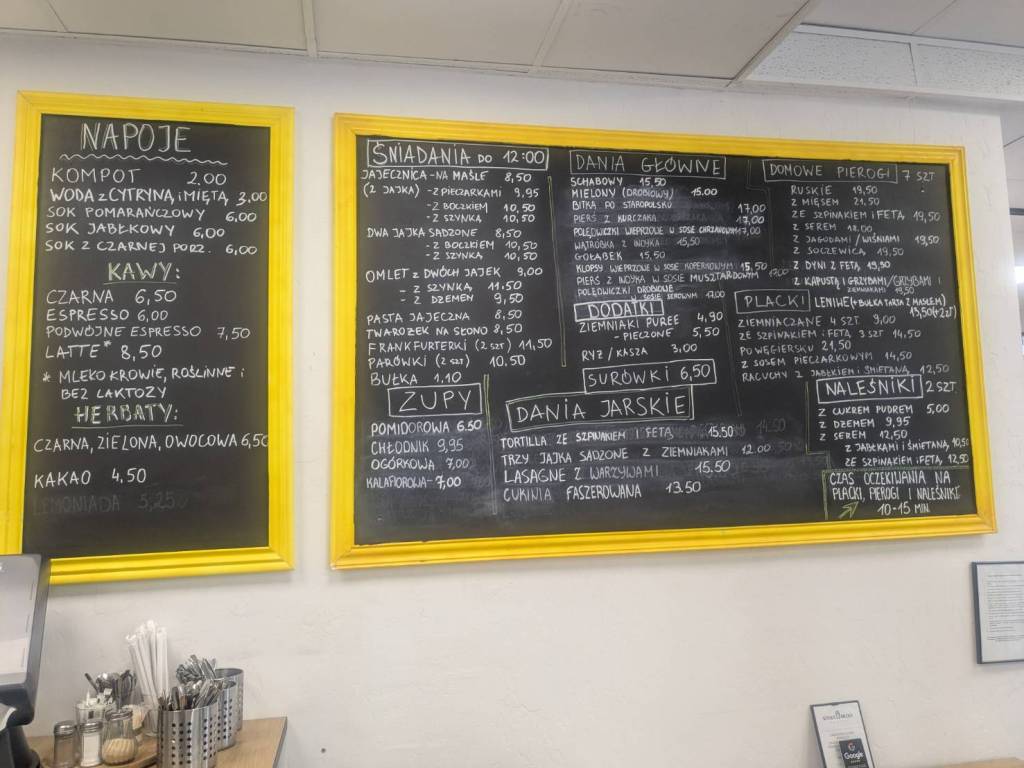 NAPOJE
KOMPOT 2,00
WODA z CYTRYNĄ i MIĘTĄ 3,00
SOK POMARAŃCZOWY 6,00
SOK JABŁKOWY 6,00
SOK Z CZARNEJ PORZ. 6,00
KAWY:
CZARNA 6,50
ESPRESSO 6,00
PODWÓJNE ESPRESSO 7,50
LATTE* 8,50
* MLEKO KROWIE, ROŚLINNE i
BEZ LAKTOZY
HERBATY:
CZARNA, ZIELONA, OWOCOWA 6,50
KAKAO 4,50
LEMONIADA 5,25
ŚNIADANIA DO 12:00
JAJECZNICA - NA MAŚLE 8,50
(2 JAJKA) - Z PIECZARKAMI 9,95
- Z BOCZKIEM 10,50
- Z SZYNKĄ 10,50
DWA JAJKA SADZONE 8,50
- Z BOCZKIEM 10,50
- Z SZYNKĄ 10,50
OMLET z DWÓCH JAJEK 9,00
- Z SZYNKĄ 11.50
- Z DŻEMEM 9,50
PASTA JAJECZNA 8,50
TWAROŻEK NA SŁONO 8,50
FRANKFURTERKI (2 SZT) 11,50
PARÓWKI (2 SZT) 10.50
BUŁKA 1.10
ZUPY
POMIDOROWA 6.50
CHŁODNIK 9,95
OGÓRKOWA 7,00
KALAFIOROWA - 7,00
DANIA GŁÓWNE
SCHABOWY 15,50
MIELONY (DROBIOWY) 15.00
BITKA PO STAROPOLSKU 17,00
PIERŚ Z KURCZAKA 17,00
POLĘDWICZKI WIEPRZOLE W SOSIE CHRZANOWYM 17,00
WĄTRÓBKA Z INDYKA 15,50
GOŁĄBEK 15,50
KLOPSY WIEPRZOLE W SOSIE KOPERKOWYM 15,50
PIERŚ Z INDYKA W SOSIE MUSZTARDOWYM 17,00
POLĘDWICZKI DROBIOLE
W SOSIE SEROWYM 17,00
DODATKI
ZIEMNIAKI PUREE 4,90
- PIECZONE 5,50
RYŻ / KASZA 3,00
SURÓWKI 6,50
DANIA JARSKIE
TORTILLA ZE SZPINAKIEM I FETĄ 15.50
TRZY JAJKA SADZONE Z ZIEMNIAKAMI 12.00
LASAGNE Z WARZYWAMI 15.50
CUKINIA FASZEROWANA 13.50
DOMOWE PIEROGI 7 SZT
RUSKIE 19,50
Z MIĘSEM 21,50
ZE SZPINAKIEM i FETĄ 19,50
Z SEREM 18.00
Z JAGODAMI / WIŚNIAMI 19,50
Z SOCZEWICĄ 19,50
Z DYNI Z FETĄ 19,50
Z KAPUSTĄ I GRZYBAMI / GRZYBAMI I
ZIEMNIAKAMI 19,50
PLACKI LENIHE (+ BUŁKA TARTA Z MASŁEM)
13,50 (+2zł)
ZIEMNIACZANE 4 SZT 9,00
ZE SZPINAKIEM i FETĄ 3 SZT 14,50
PO WĘGIERSKU 21,50
Z SOSEM PIECZARKOWYM 14,50
RACUCHY Z JABŁKIEM i ŚMIETANĄ 12,50
NALEŚNIKI 2 SZT.
Z CUKREM PUDREM 5,00
Z DŻEMEM 9,95
Z SEREM 12,50
Z JABŁKAMI i ŚMIETANĄ 10,50
ZE SZPINAKIEM i FETĄ 12,50
CZAS OCZEKIWANIA NA
PLACKI, PIEROGI I NALEŚNIKI:
10-15 MIN.
Google